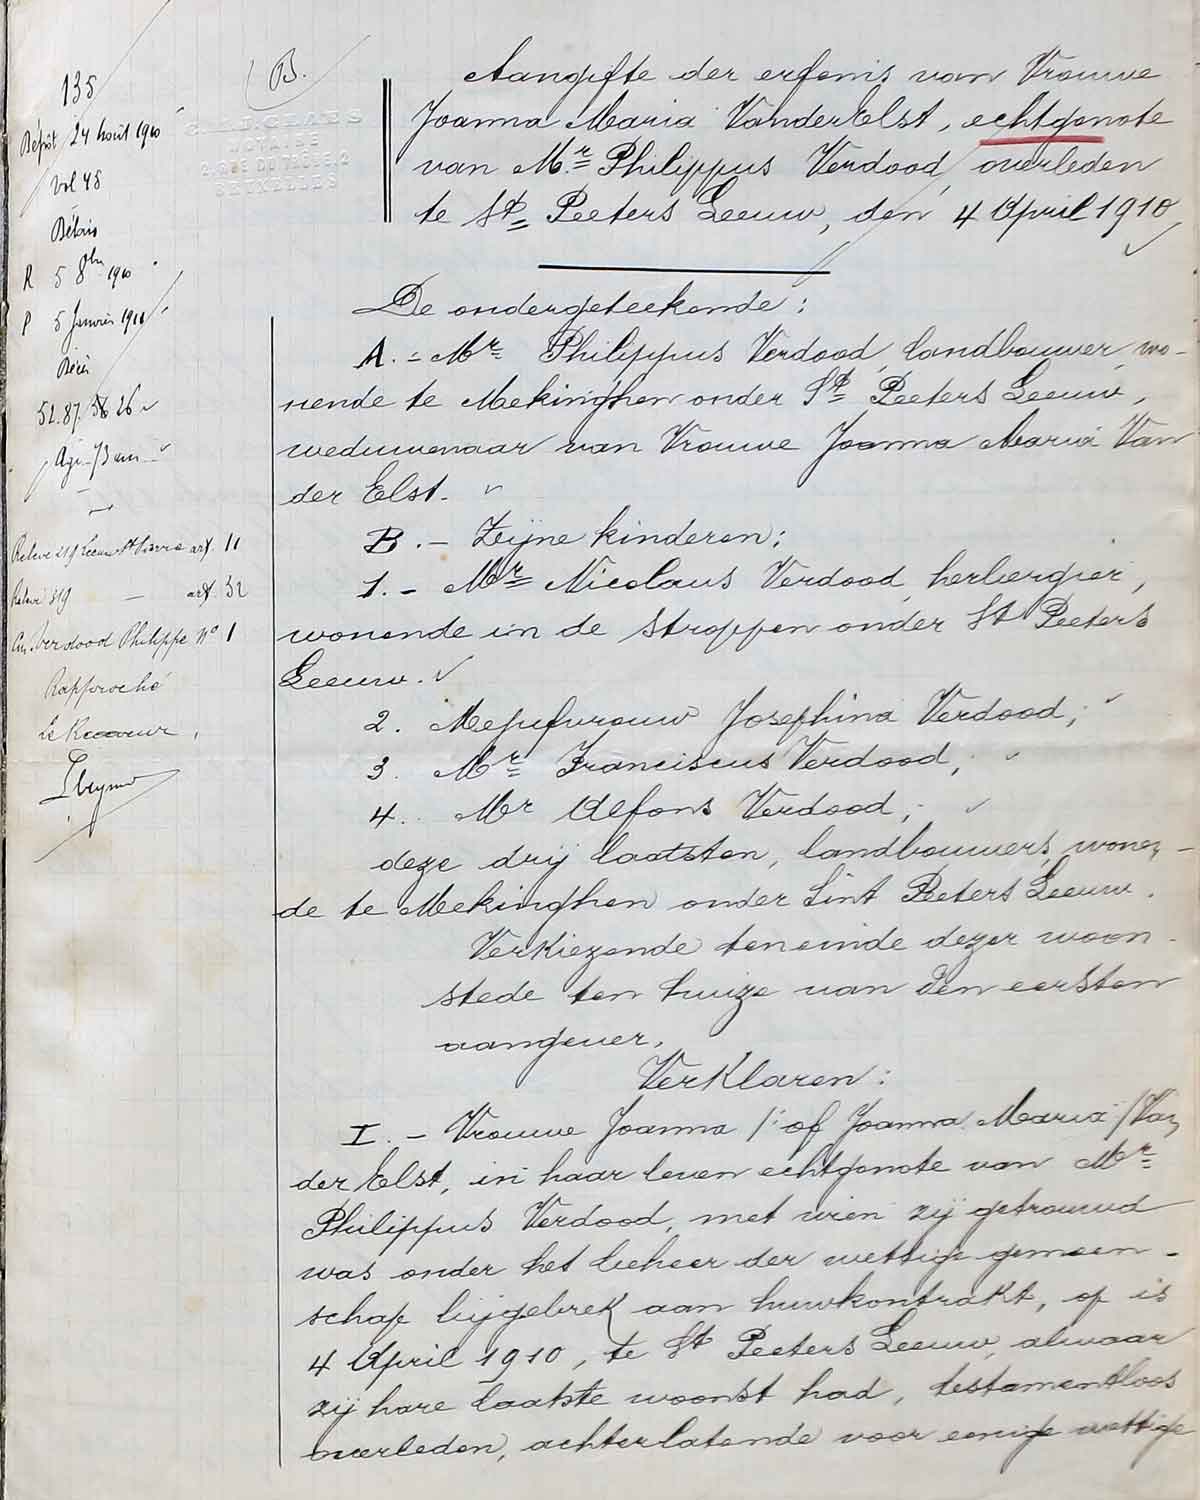 135
Dépôt 24 août 1910
Vol 48
R 5 8bre 1910
P 5 Janvier 1911
52.87. 26
art. 11
art. 32
Verdood Philippe No 1
Rapproché
Le Receveur
B.
NOTAIRE
BRUXELLES
Aangifte der erfenis van Vrouwe
Joanna Maria VanderElst, echtgenote
van Mr Philippus Verdood, overleden
te St Peeters Leeuw, den 4 April 1910
De ondergeteekende:
A. - Mr Philippus Verdood, landbouwer, wo-
nende te Mekinghen onder St Peeters Leeuw,
weduwenaar van Vrouwe Joanna Maria Van
der Elst.
B. - Zijne kinderen:
1. - Mr Nicolaus Verdood, herbergier,
wonende in de Stroppen onder St Peeters
Leeuw.
2. Mejufvrouw Josephina Verdood;
3. Mr Franciscus Verdood;
4. Mr Alfons Verdood;
deze drij laatsten, landbouwers, wonen-
de te Mekinghen onder Sint Peeters Leeuw.
Verkiezende ten einde dezer woon-
stede ten huize van den eersten
aangever,
Verklaren:
I. - Vrouwe Joanna /: of Joanna Maria / Van
der Elst, in haar leven echtgenote van Mr
Philippus Verdood, met wien zij getrouwd
was onder het beheer der wettige gemeen-
schap bijgebrek aan huwkontrakt, op is
4 April 1910, te St Peeters Leeuw, alwaar
zij hare laatste woonst had, testamentloos
overleden, achterlatende voor eenige wettige